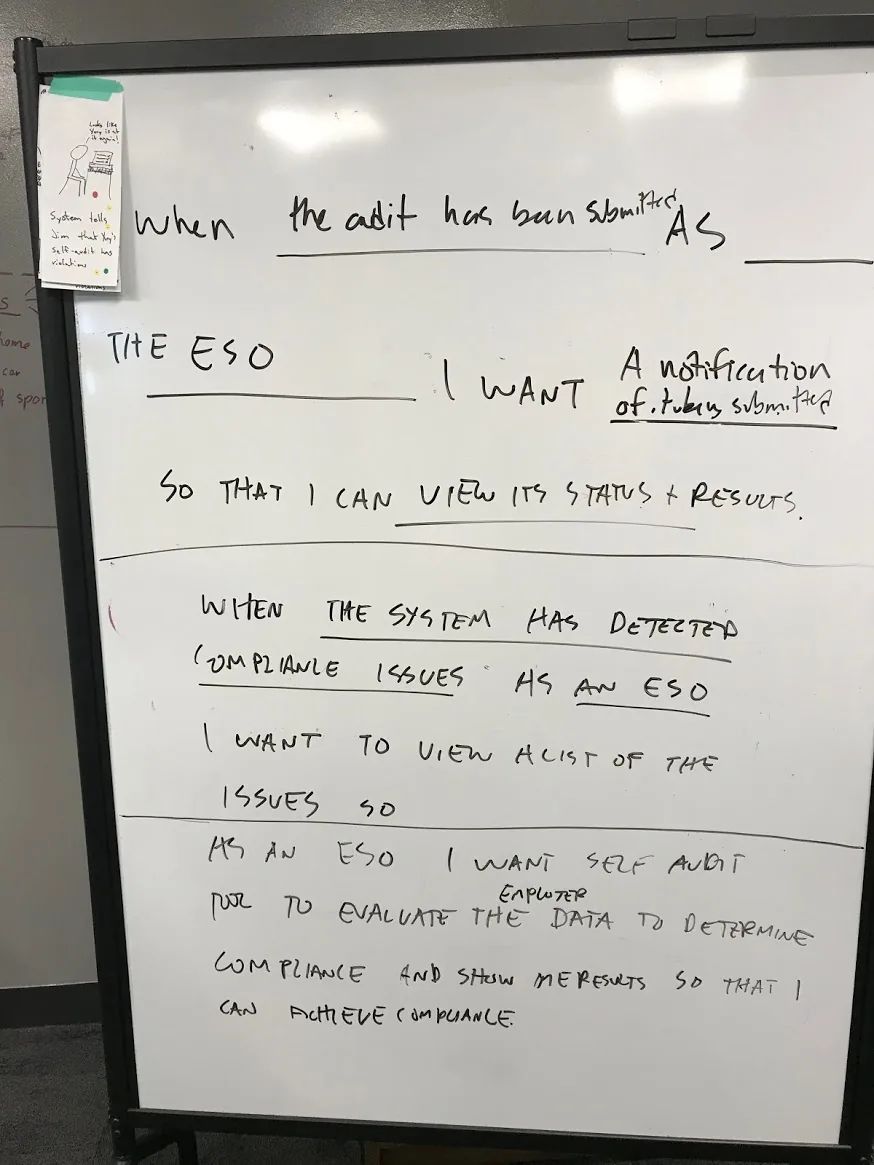 Looks like
Yury is at
it again!
System tells
Jim that Yury's
self-audit has
violations
violations
When the audit has been submitted AS
THE ESO I WANT A notification
of submitted
SO THAT I CAN VIEW ITS STATUS + RESULTS.
WHEN THE SYSTEM HAS DETECTED
COMPLIANCE ISSUES AS AN ESO
I WANT TO VIEW A LIST OF THE
ISSUES SO
AS AN ESO I WANT SELF AUDIT
EMPLOYER
TOOL TO EVALUATE THE DATA TO DETERMINE
COMPLIANCE AND SHOW ME RESULTS SO THAT I
CAN ACHIEVE COMPLIANCE.
S
home
car
spor